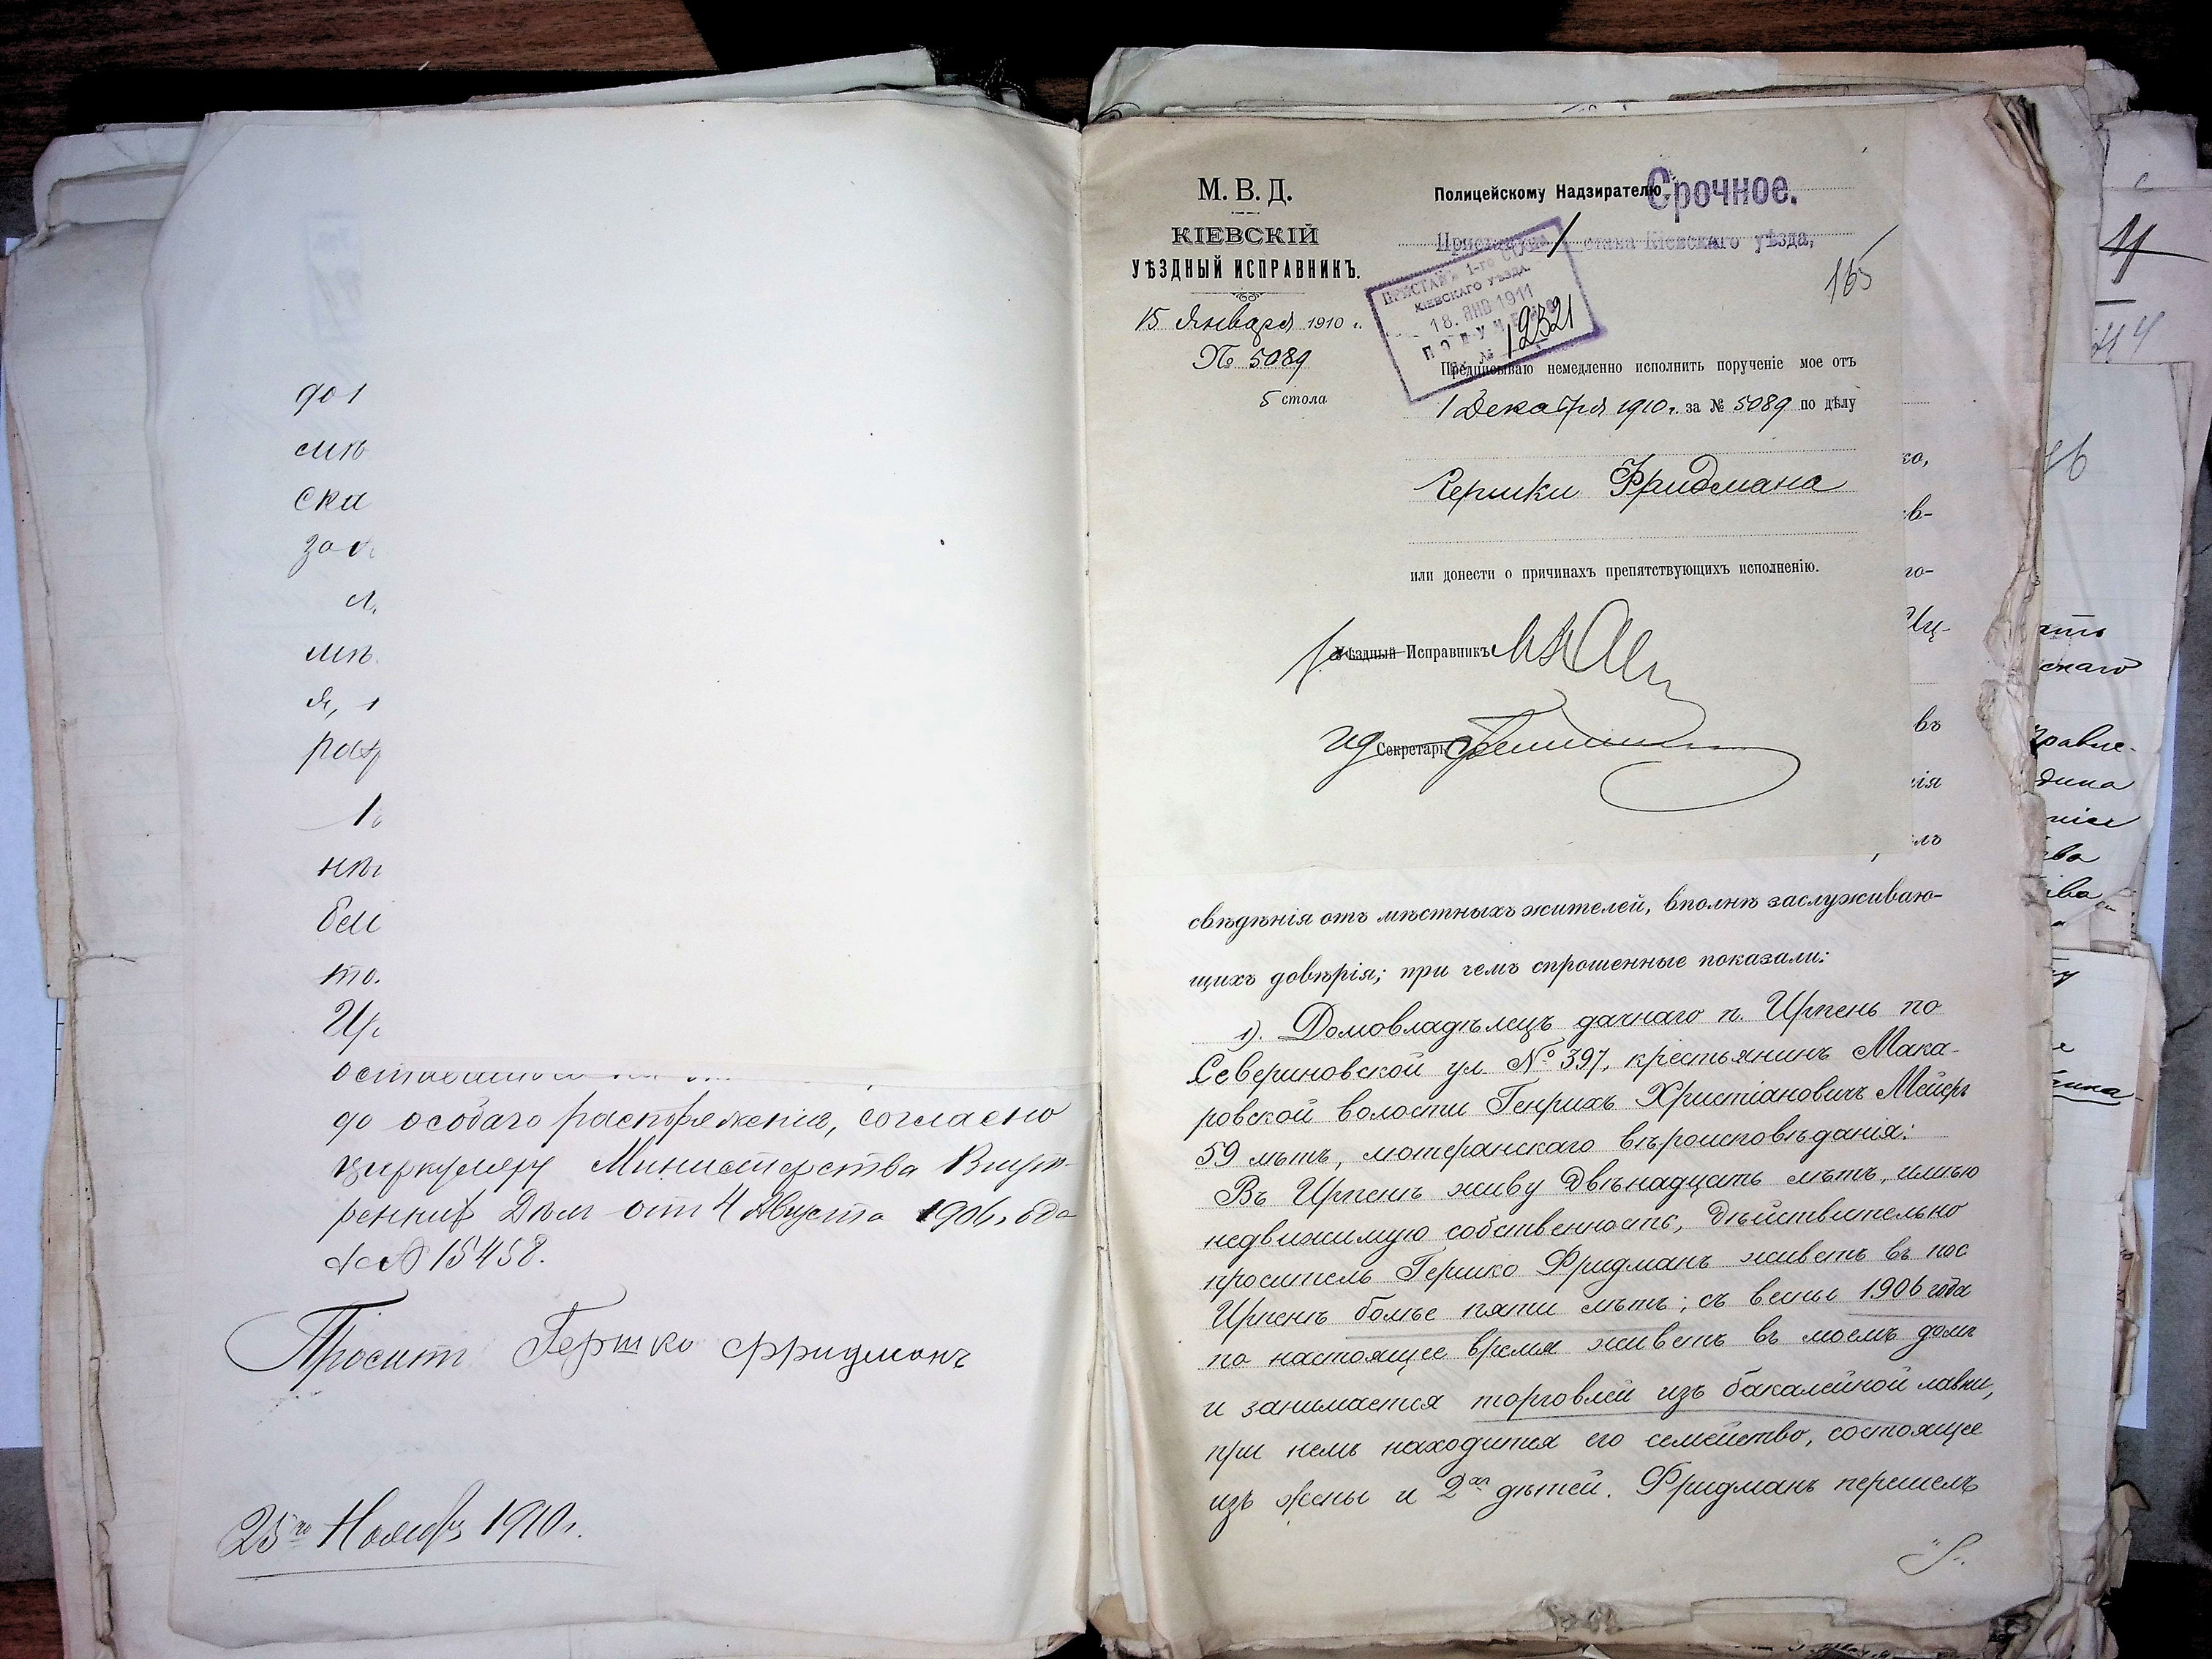 до
смъ
ска
зак
л.
мъ
я,
рас
1
нъ
бы
то.
Ир
до особаго распоряженія, согласно
циркуляру Министерства Внут-
реннихъ Дѣлъ отъ 4 Августа 1906 года
за № 15458.
Проситъ Гершко Фридманъ
25го Ноября 1910 г.
М. В. Д.
КІЕВСКІЙ
УѢЗДНЫЙ ИСПРАВНИКЪ.
15 Января 1910 г.
№ 5089
5 стола
Полицейскому Надзирателю
Срочное.
Приставу 1 стана Кіевскаго уѣзда,
165
ПРИСТАВЪ 1-го СТАНА
КІЕВСКАГО УѢЗДА.
18. ЯНВ 1911
ПОЛУЧЕНО
№ 12321
Предписываю немедленно исполнить порученіе мое отъ
1 Декабря 1910 г. за № 5089 по дѣлу
Гершки Фридмана
или донести о причинахъ препятствующихъ исполненію.
Уѣздный Исправникъ
ид Секретарь
свѣдѣнія отъ мѣстныхъ жителей, вполнѣ заслуживаю-
щихъ довѣрія; при чемъ спрошенные показали:
1). Домовладѣлецъ дачнаго п. Ирпень по
Севериновской ул № 397, крестьянинъ Мака-
ровской волости Генрихъ Христіановичъ Мейеръ
59 лѣтъ, лютеранскаго вѣроисповѣданія:
Въ Ирпенѣ живу двѣнадцать лѣтъ, имѣю
недвижимую собственность, дѣйствительно
проситель Гершко Фридманъ живетъ въ пос
Ирпенѣ болѣе пяти лѣтъ; съ весны 1906 года
по настоящее время живетъ въ моемъ домѣ
и занимается торговлей изъ бакалейной лавки,
при немъ находится его семейство, состоящее
изъ жены и 2хъ дѣтей. Фридманъ перешелъ
ко,
в-
го-
Иц-
въ
ія
лъ